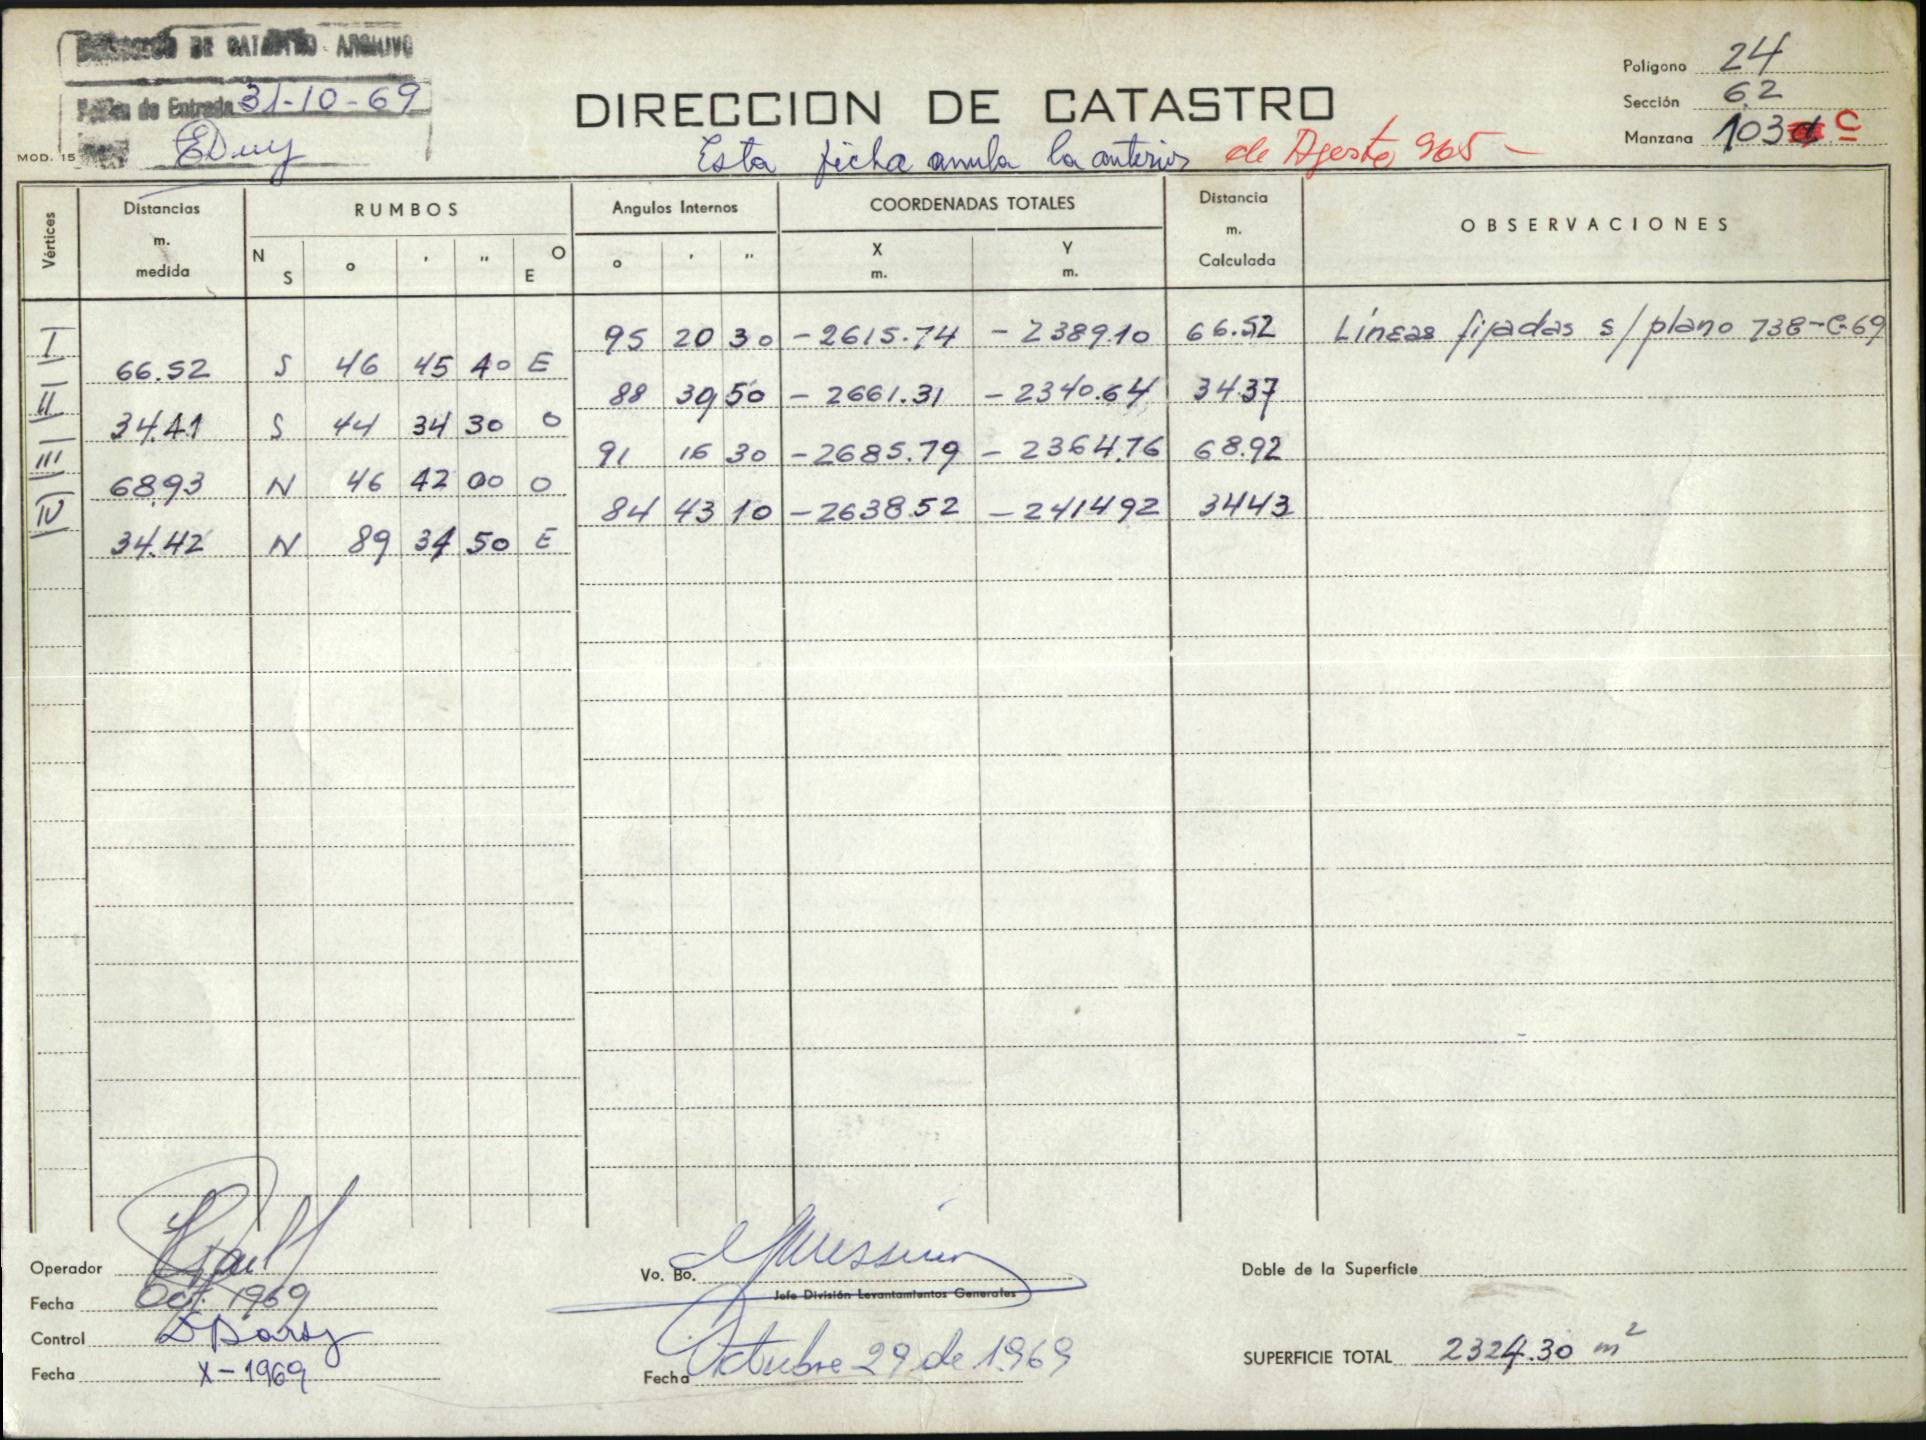 DE CATASTRO ARCHIVO
Fecha de Entrada 31-10-69
Poligono 24
Sección 62
Manzana 103 C
DIRECCION DE CATASTRO
MOD. 15
Esta ficha anula la anterior de Agosto 965 -
Vértices
Distancias m. medida
RUMBOS
N S ° ' " O E
Angulos Internos
° ' "
COORDENADAS TOTALES
X m. Y m.
Distancia m. Calculada
OBSERVACIONES
I 95 20 30 -2615.74 -2389.10 66.52 Líneas fijadas s/plano 738-C-69
66.52 S 46 45 40 E
II 88 39 50 -2661.31 -2340.64 34.37
34.41 S 44 34 30 O
III 91 16 30 -2685.79 -2364.76 68.92
68.93 N 46 42 00 O
IV 84 43 10 -2638.52 -2414.92 34.43
34.42 N 89 34 50 E
Operador
Fecha Oct. 1969
Control
Fecha X-1969
Vo. Bo.
Jefe División Levantamientos Generales
Fecha Octubre 29 de 1969
Doble de la Superficie
SUPERFICIE TOTAL 2324.30 m²